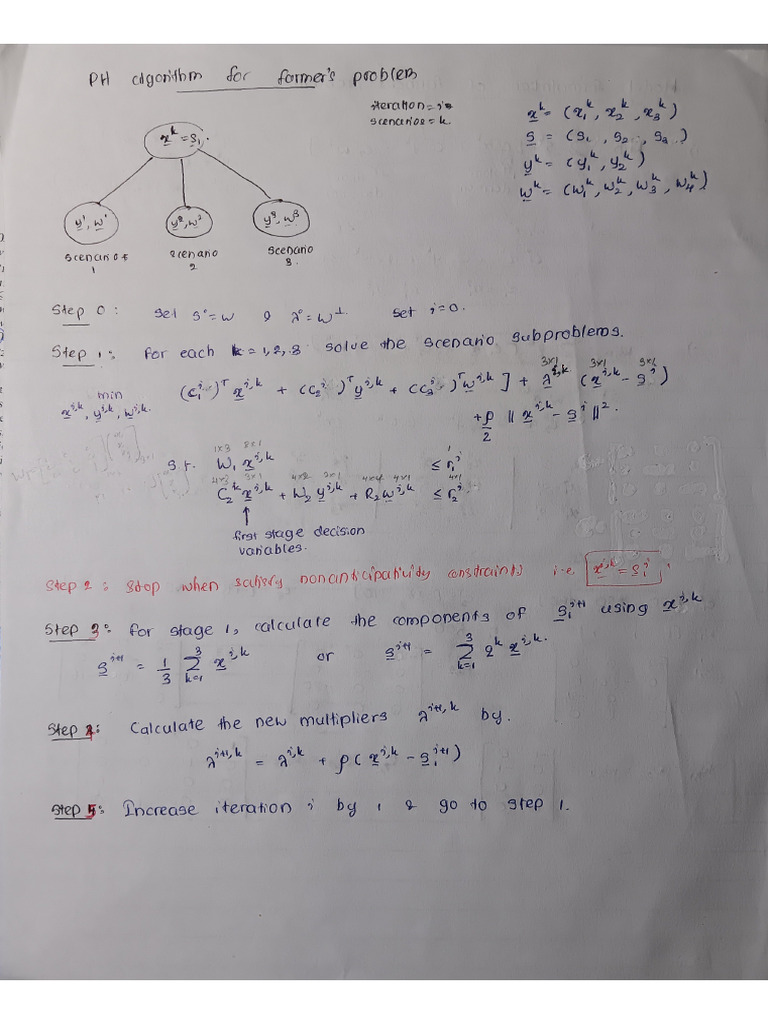 PH algorithm for farmer's problem
iteration = i
scenarios = k.
x^k = (x_1^k, x_2^k, x_3^k)
s = (s_1, s_2, s_3)
y^k = (y_1^k, y_2^k)
w^k = (w_1^k, w_2^k, w_3^k, w_4^k)
x^k = s_1.
y^1, w^1
y^2, w^2
y^3, w^3
scenario
1
scenario
2
scenario
3.
Step 0: Set s^0 = w & λ^0 = w^⊥ set i = 0.
Step 1: For each k = 1, 2, 3 solve the scenario subproblems.
3×1 3×1 3×1
min (c_1^i)^T x^{i,k} + (c_2^i)^T y^{i,k} + (c_3^i)^T w^{i,k} ] + λ^{i,k} (x^{i,k} - s^i)
x^{i,k}, y^{i,k}, w^{i,k}.
+ρ/2 || x^{i,k} - s^i ||^2.
1×3 3×1 1
s.t. W_1 x^{i,k} ≤ r_1^i
4×3 3×1 4×2 2×1 4×4 4×1 4×1
C_2^k x^{i,k} + W_2 y^{i,k} + R_2 w^{i,k} ≤ r_2^i
first stage decision
variables.
Step 2: Stop when satisfy nonanticipativity constraints i.e. x^{i,k} = s_1^i
Step 3: For stage 1, calculate the components of s_1^{i+1} using x^{i,k}
s^{i+1} = 1/3 Σ_{k=1}^3 x^{i,k} or s^{i+1} = Σ_{k=1}^3 q^k x^{i,k}.
Step 4: Calculate the new multipliers λ^{i+1,k} by.
λ^{i+1,k} = λ^{i,k} + ρ(x^{i,k} - s_1^{i+1})
Step 5: Increase iteration i by 1 & go to step 1.